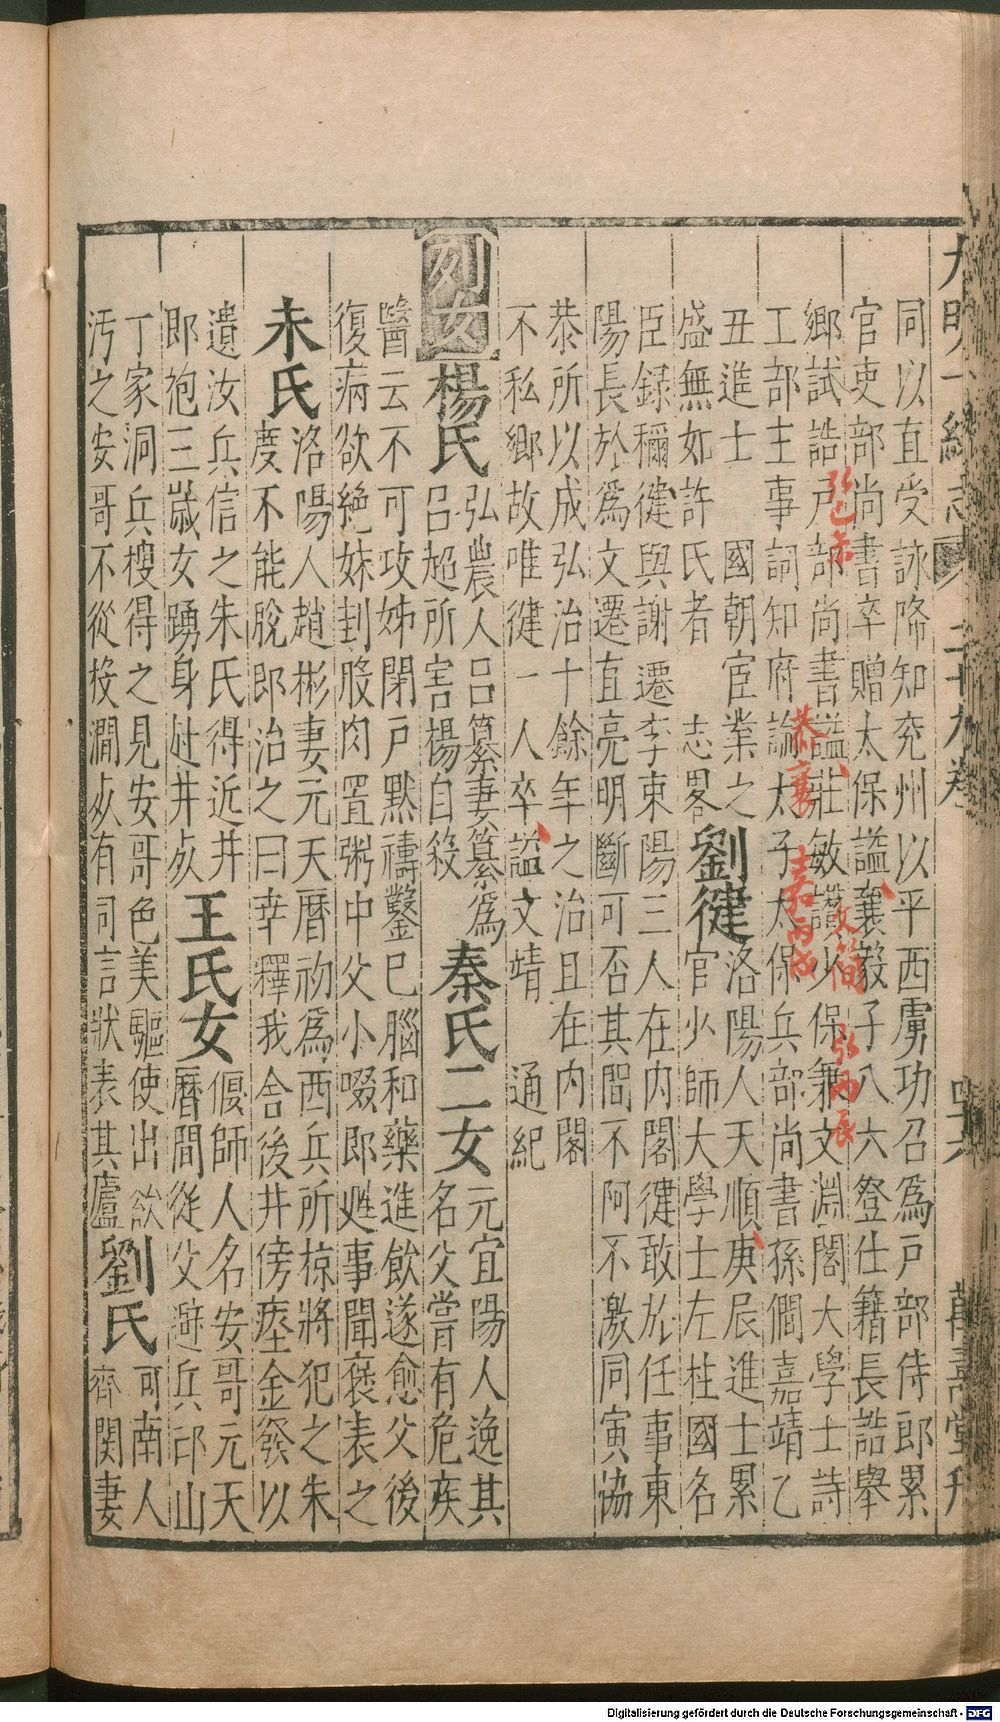 大明一統志 二十九卷 萬壽堂刊
同以直受詠降知兖州以平西虜功召爲戶部侍郎累
官吏部尚書卒贈太保謚襄毅子八六登仕籍長誥舉
鄉試誥戶部尚書謚莊敏讚少保兼文淵閣大學士詩
工部主事詞知府論太子太保兵部尚書孫僩嘉靖乙
丑進士 國朝宦業之
盛無如許氏者 志畧
劉健
洛陽人天順庚辰進士累
官少師大學士左柱國名
臣録稱健與謝遷李東陽三人在内閣健敢於任事東
陽長於爲文遷直亮明斷可否其間不阿不激同寅協
恭所以成弘治十餘年之治且在内閣
不私鄉故唯健一人卒謚文靖 通紀
列女
楊氏
弘農人呂纂妻纂爲
呂超所害楊自殺
秦氏二女
元宜陽人逸其
名父嘗有危疾
醫云不可攻姊閉戶默禱鑿巳腦和藥進飲遂愈父後
復病欲絶妹刲股肉置粥中父小啜即甦事聞襃表之
朱氏
洛陽人趙彬妻元天曆初爲西兵所掠將犯之朱
度不能脫即治之曰幸釋我舍後井傍瘞金發以
遺汝兵信之朱氏得近井
即抱三歲女踴身赴井歿
王氏女
偃師人名安哥元天
曆間從父避兵邙山
丁家洞兵搜得之見安哥色美驅使出欲
汚之安哥不從投澗歿有同言狀表其廬
劉氏
河南人
齊關妻
弘己未
恭襄
嘉丙戌
文簡
弘丙辰
Digitalisierung gefördert durch die Deutsche Forschungsgemeinschaft - DFG